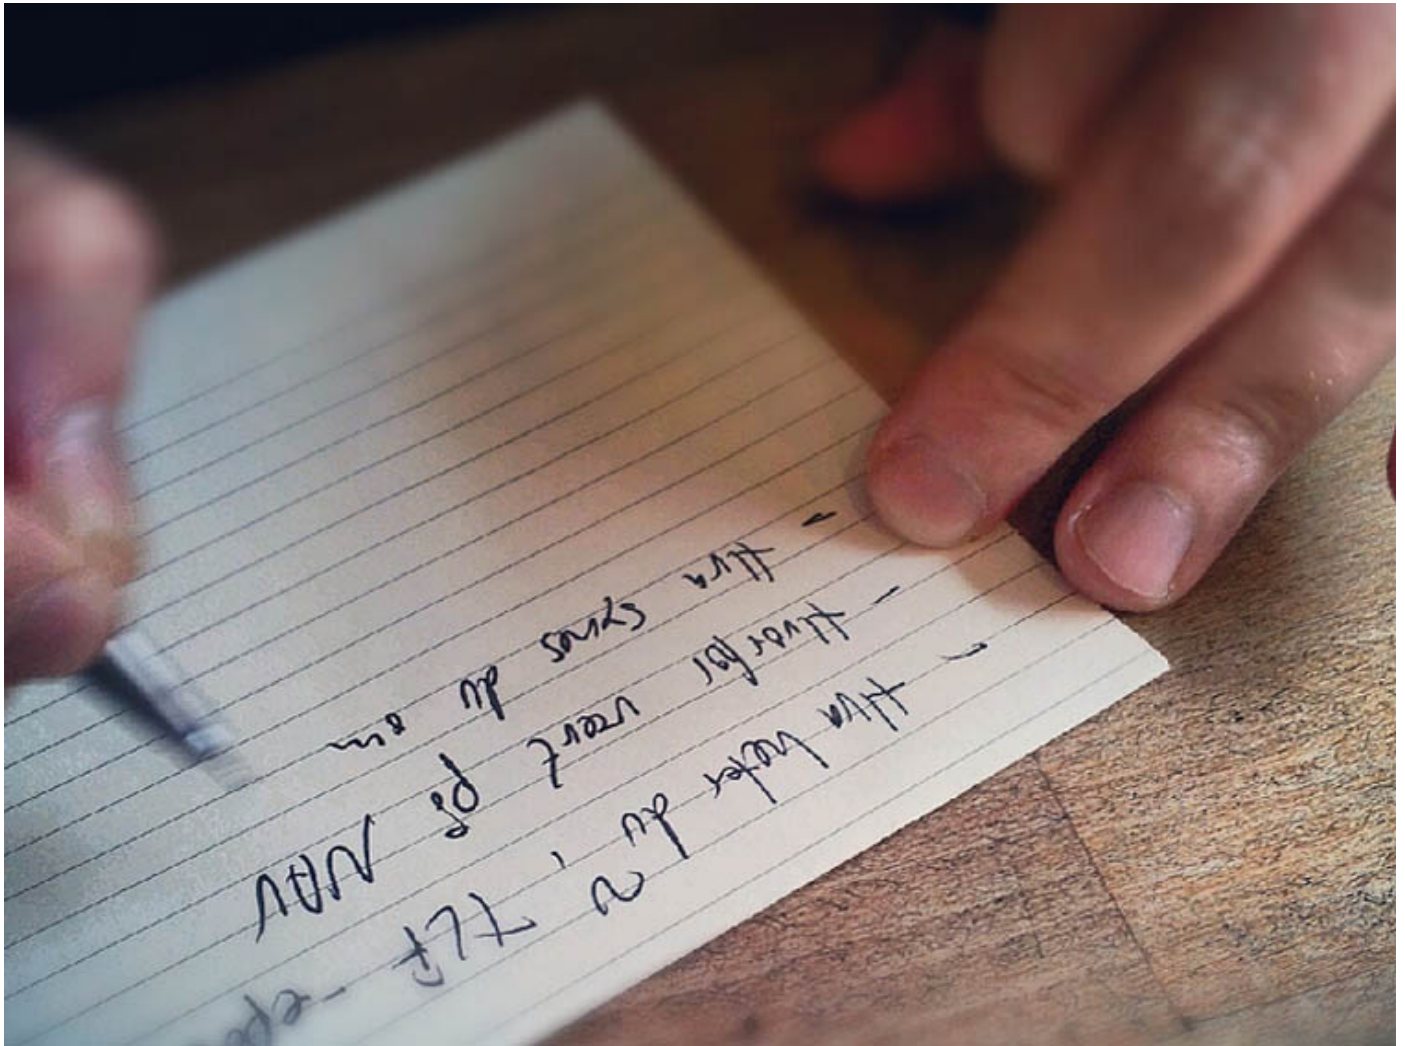 - Hva heter du, TLF -
- Hvorfor vært på NAV
- Hva synes du om